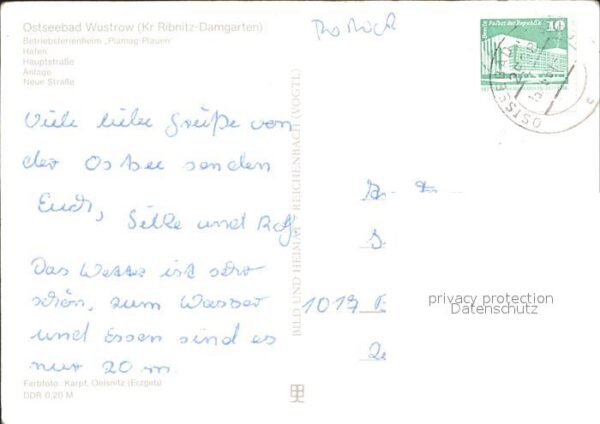 Ostseebad Wustrow (Kr Ribnitz-Damgarten)
Betriebsferienheim "Plamag-Plauen"
Hafen
Hauptstraße
Anlage
Neue Straße
10
Palast der Republik
OSTSEEBAD
Viele liebe Grüße von
der Ostsee senden
Euch,
Silke und Rolf.
Das Wetter ist sehr
schön, zum Wasser
und Essen sind es
nur 20 m.
BILD UND HEIMAT REICHENBACH (VOGTL)
1017
privacy protection
Datenschutz
Farbfoto: Karpf, Oelsnitz (Erzgeb)
DDR 0,20 M